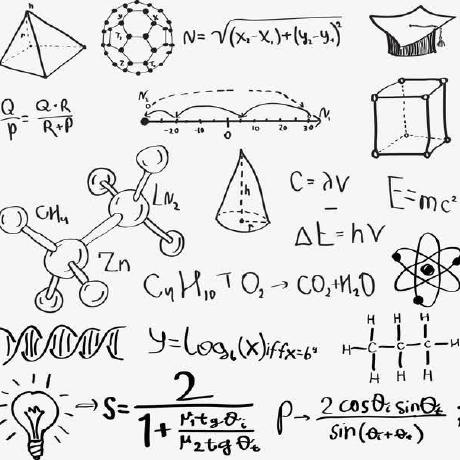 N=√(x₂-x₁)+(y₂-y₁)²
Q/P = Q·R/R+P
N₀ N₁
-20 -10 0 10 20 30
h
r
C=λV
E=mc²
ΔE=hV
CH₄
LN₂
Zn
C₄H₁₀+O₂→CO₂+H₂O
y=Log₆(x)iffx=6ʸ
H H H
H-C-C-C-H
H H H
→S=2/1+μ₁tgθᵢ/μ₂tgθₜ
ρ→2cosθᵢsinθₜ/sin(θᵢ+θₜ)